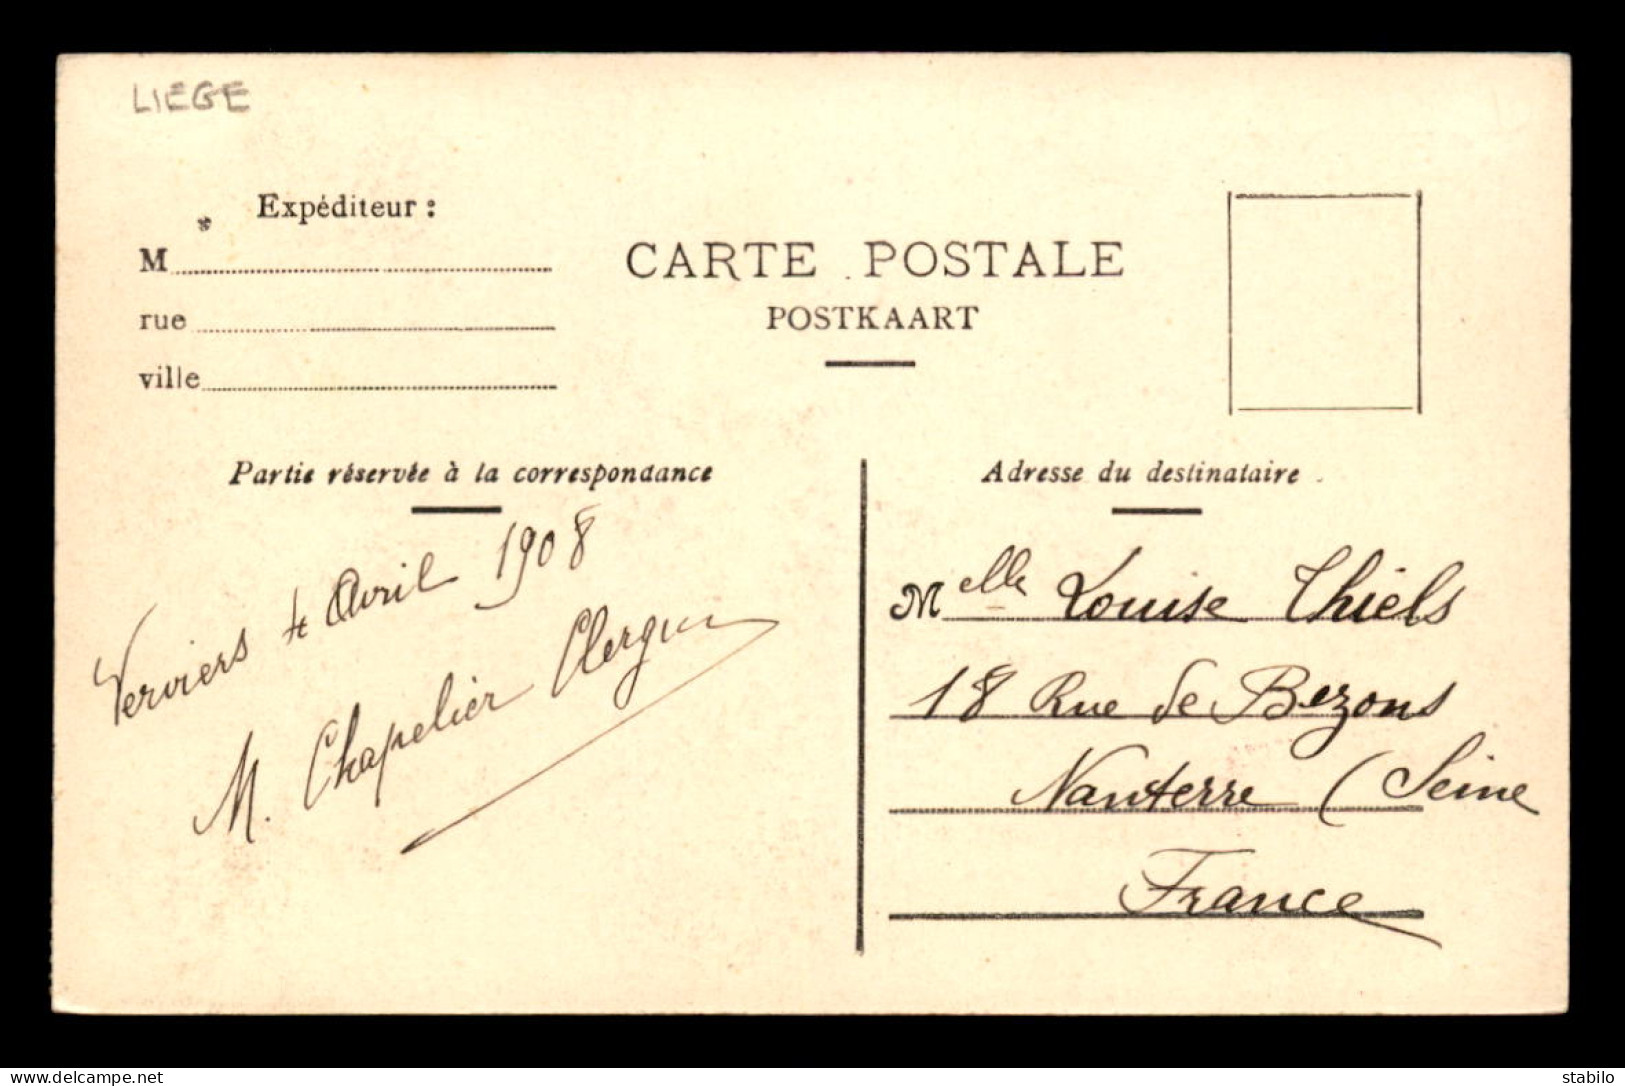 LIEGE
* Expéditeur :
M
rue
ville
CARTE POSTALE
POSTKAART
Partie réservée à la correspondance
Adresse du destinataire
Verviers 4 Avril 1908
M. Chapelier Clergue
Melle Louise Thiels
18 Rue de Bezons
Nanterre (Seine
France
www.delcampe.net
stabilo